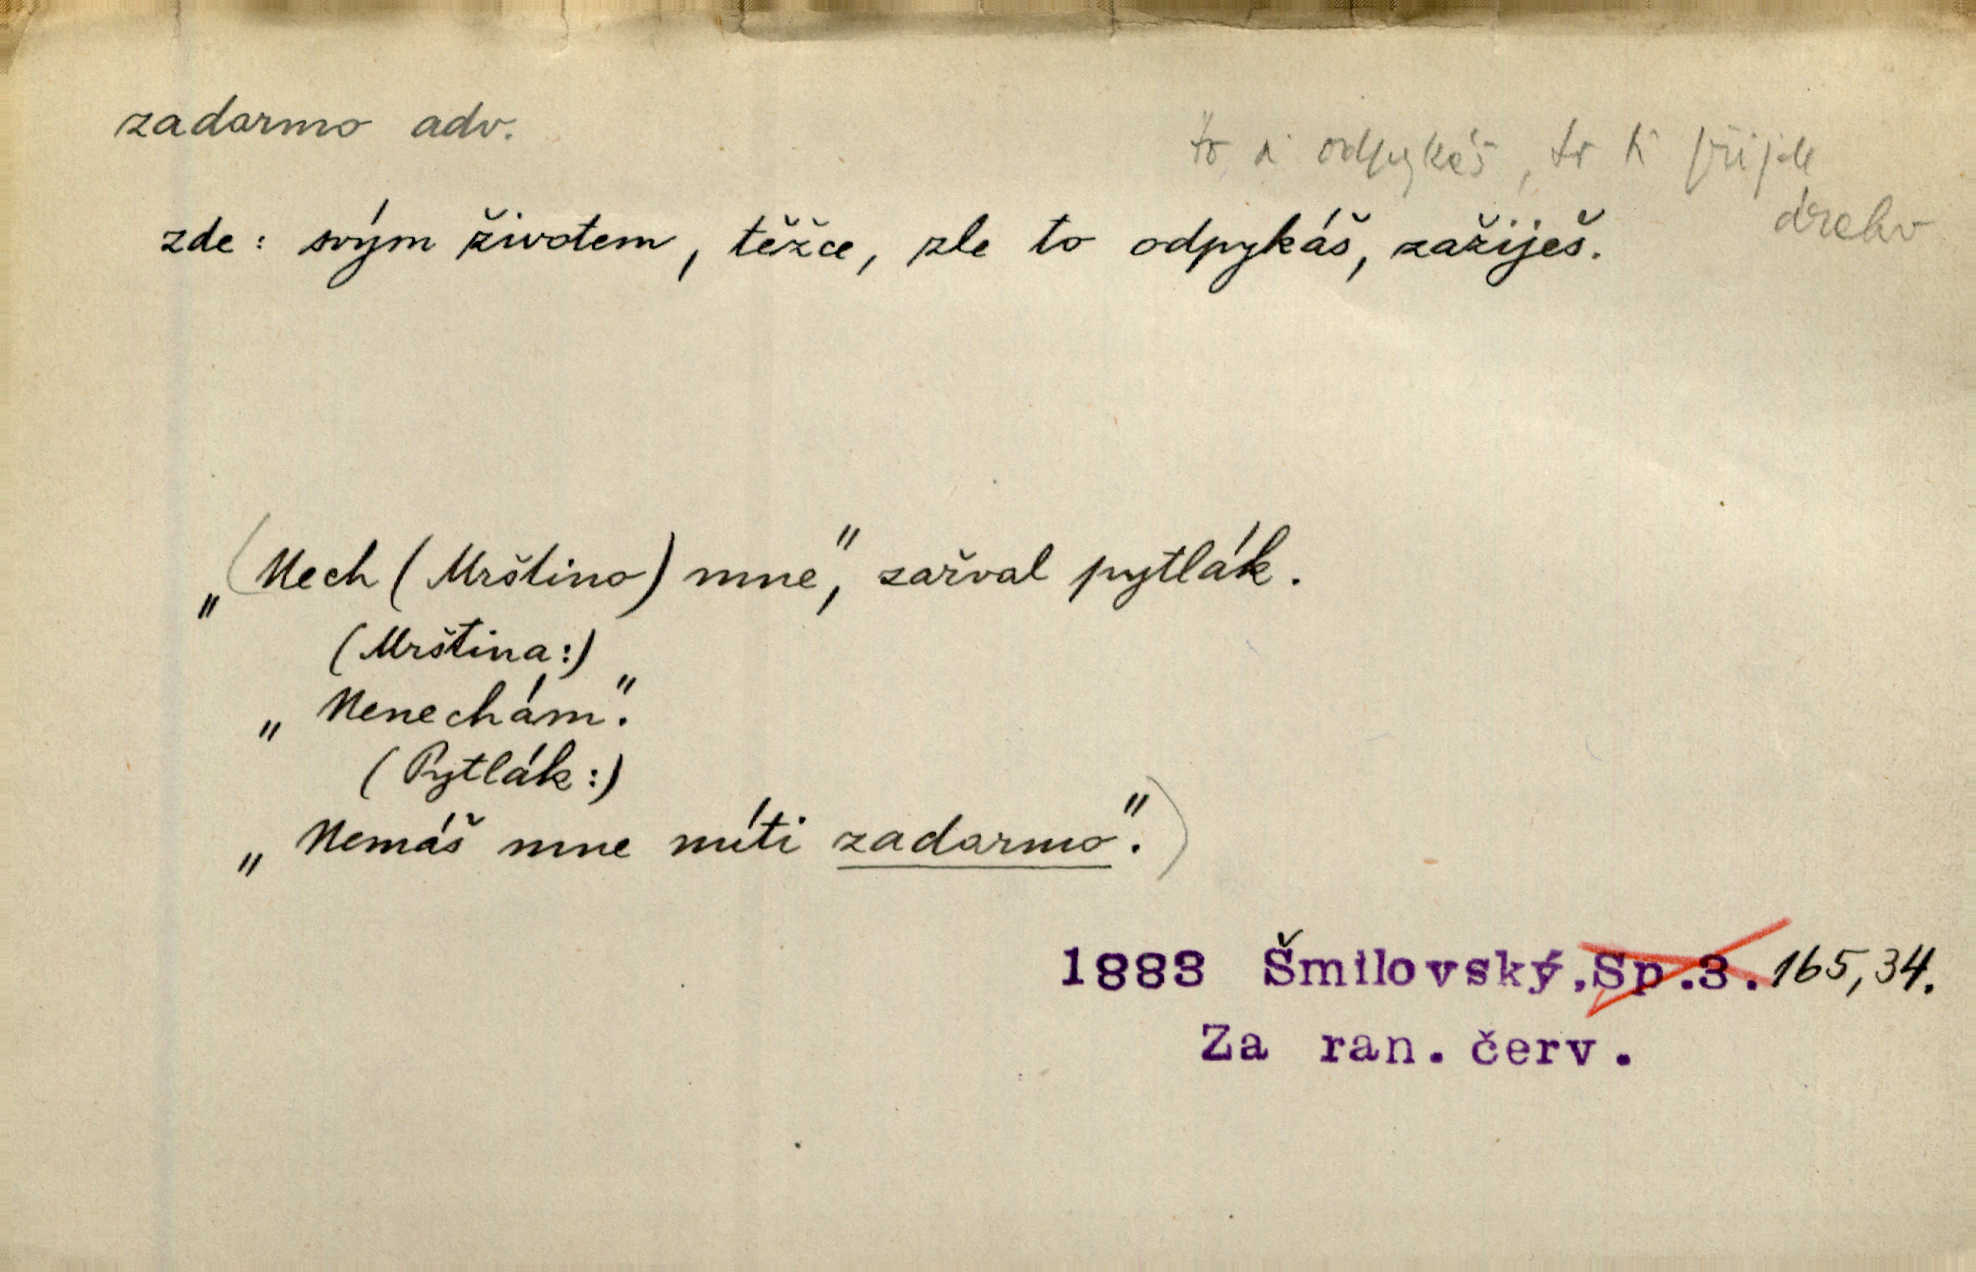 zadarmo adv.
to si odpykáš, to ti přijde
draho
zde: svým životem, těžce, zle to odpykáš, zažiješ.
„(Nech (Mrštino) mne,“ zařval pytlák.
(Mrština:)
„Nenechám“.
(Pytlák:)
„Nemáš mne míti zadarmo“.)
1883 Šmilovský, Sp.3. 165,34.
Za ran. červ.